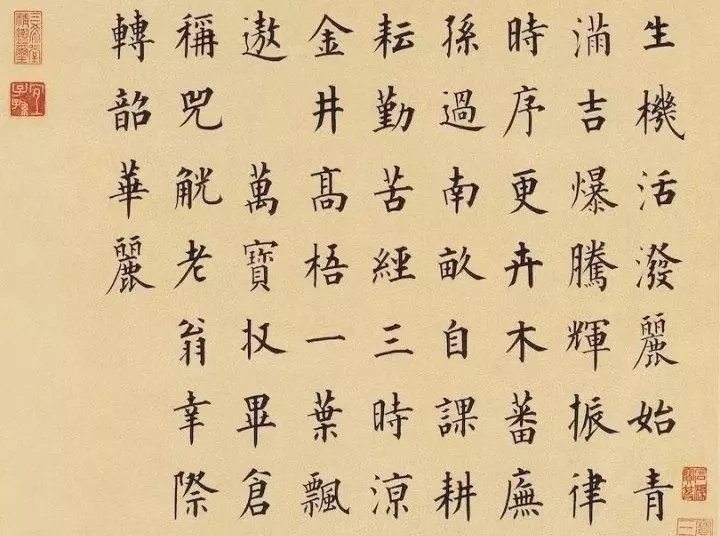 生機活潑麗始青
滿吉爆騰輝振律
時序更卉木蕃廡
孫過南畝自課耕
耘勤苦經三時涼
金井髙梧一葉飄
遨 萬寶収畢倉
稱兕觥老翁幸際
轉韶華麗
三希堂精鑑璽
宜子孫